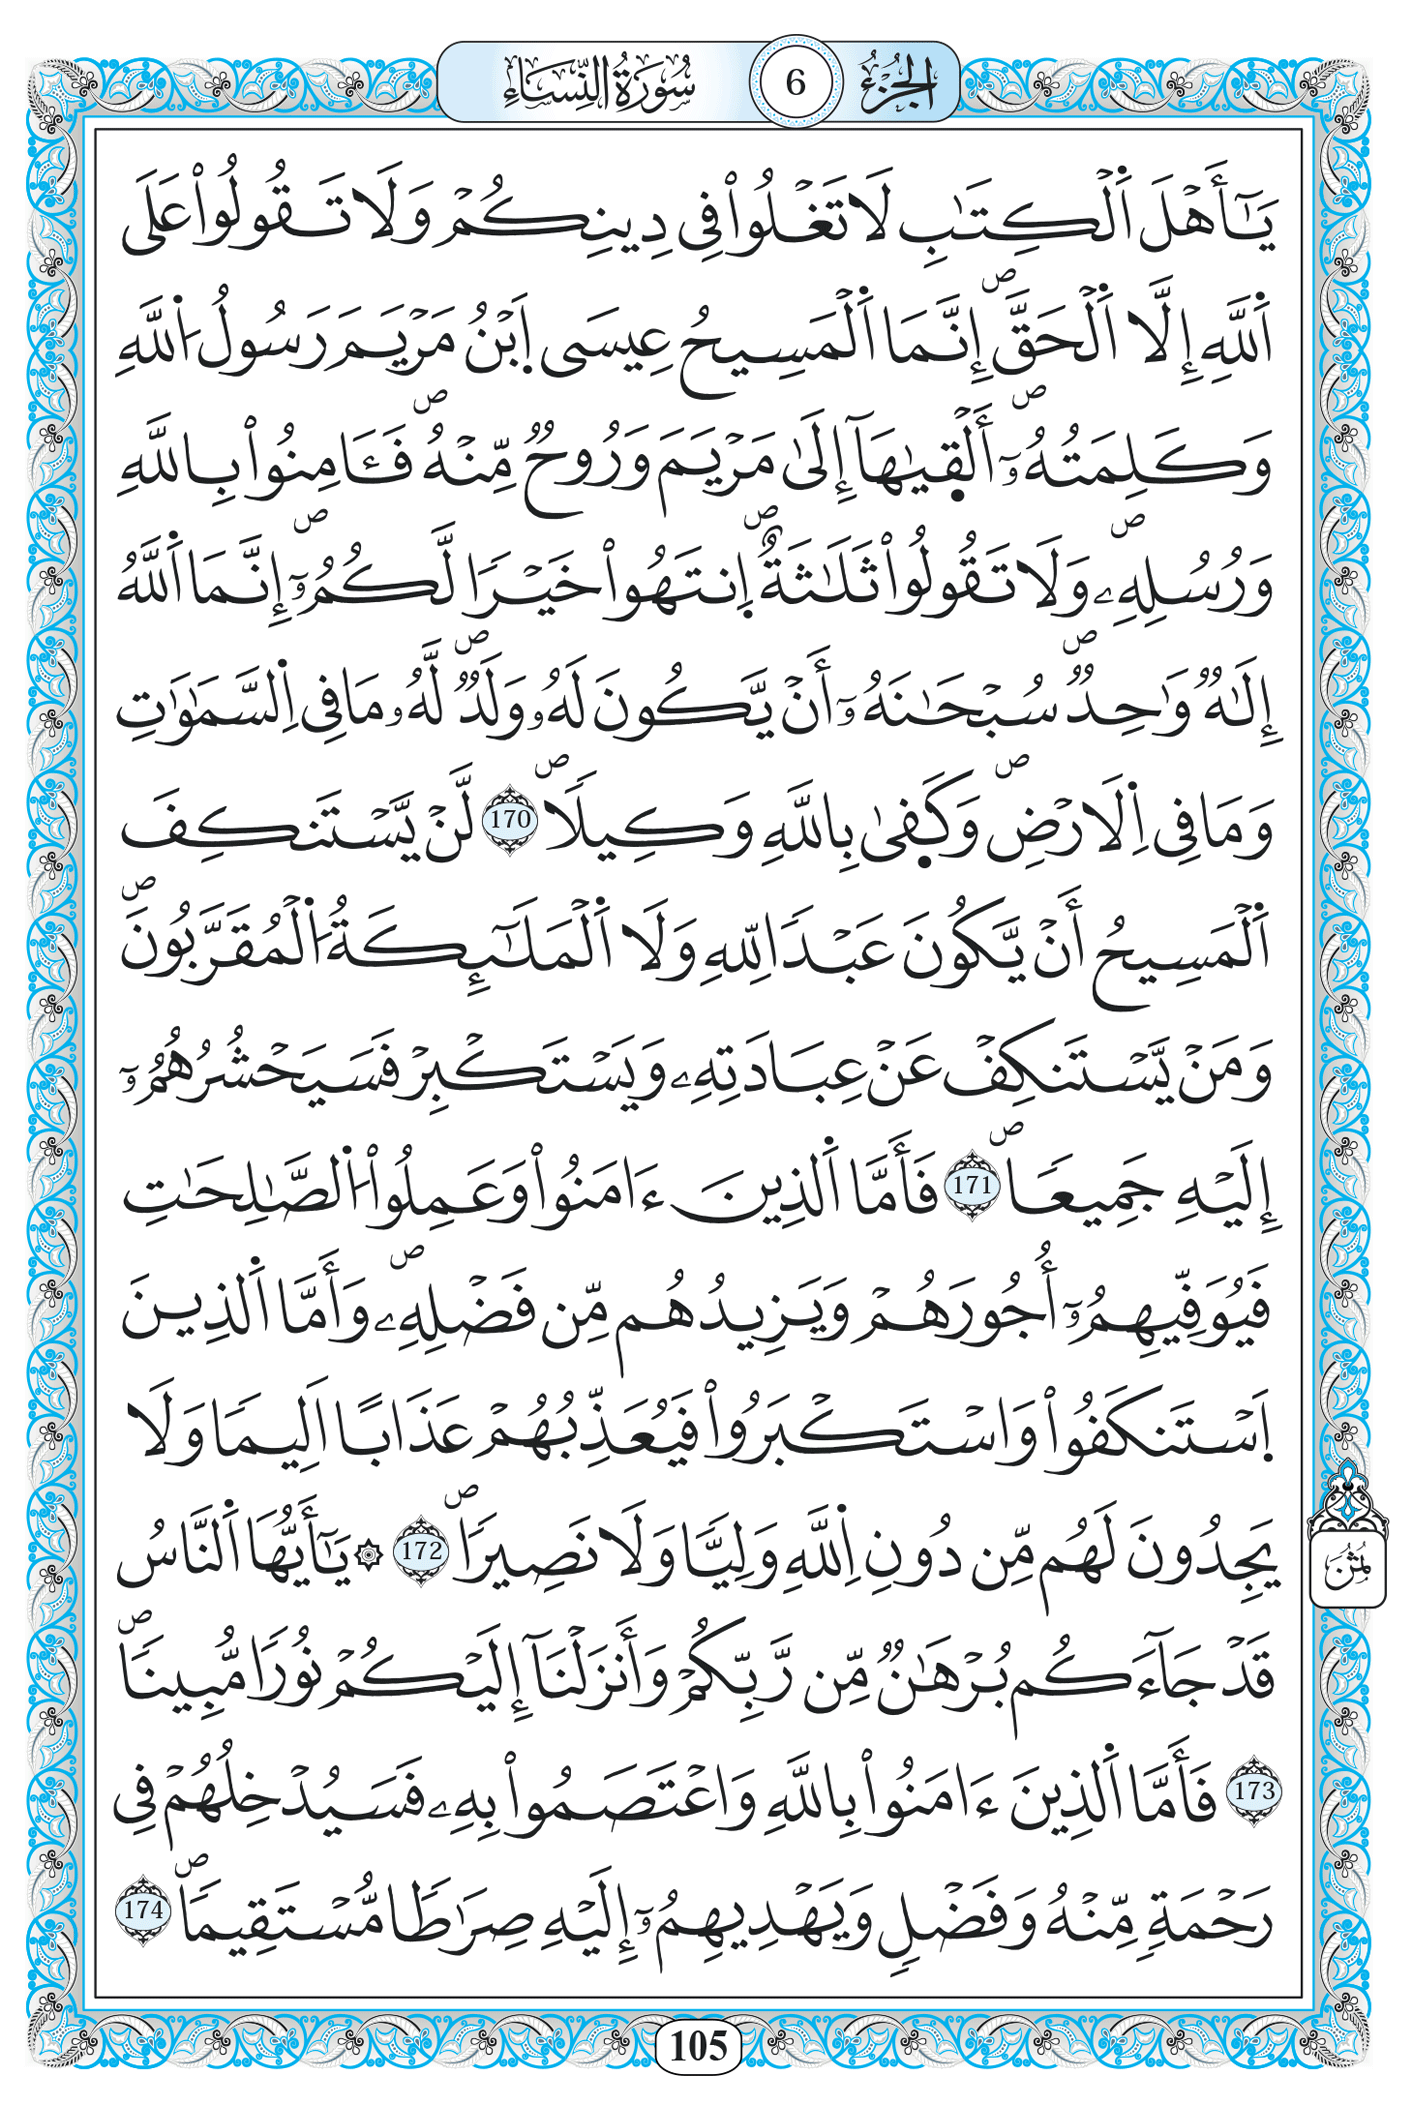 الجزء 6 سورة النساء
يَٰٓأَهْلَ اَ۬لْكِتَٰبِ لَا تَغْلُواْ فِے دِينِكُمْ وَلَا تَقُولُواْ عَلَى
اَ۬للَّهِ إِلَّا اَ۬لْحَقَّۖ إِنَّمَا اَ۬لْمَسِيحُ عِيسَى اَ۪بْنُ مَرْيَمَ رَسُولُ اُ۬للَّهِ
وَكَلِمَتُهُۥٓ أَلْقۭيٰهَآ إِلَىٰ مَرْيَمَ وَرُوحٞ مِّنْهُۖ فَـَٔامِنُواْ بِاللَّهِ
وَرُسُلِهِۦۖ وَلَا تَقُولُواْ ثَلَٰثَةٌۖ اِ۪نتَهُواْ خَيْراٗ لَّكُمُۥٓۖ إِنَّمَا اَ۬للَّهُ
إِلَٰهٞ وَٰحِدٞۖ سُبْحَٰنَهُۥٓ أَنْ يَّكُونَ لَهُۥ وَلَدٞۖ لَّهُۥ مَا فِے اِ۬لسَّمَٰوَٰتِ
وَمَا فِے اِ۬لَارْضِۖ وَكَفۭيٰ بِاللَّهِ وَكِيلاٗۖ 170 لَّنْ يَّسْتَنكِفَ
اَ۬لْمَسِيحُ أَنْ يَّكُونَ عَبْداَ لِلهِ وَلَا اَ۬لْمَلَٰٓئِكَةُ اُ۬لْمُقَرَّبُونَۖ
وَمَنْ يَّسْتَنكِفْ عَنْ عِبَادَتِهِۦ وَيَسْتَكْبِرْ فَسَيَحْشُرُهُمُۥٓ
إِلَيْهِ جَمِيعاٗۖ 171 فَأَمَّا اَ۬لذِينَ ءَامَنُواْ وَعَمِلُواْ اُ۬لصَّٰلِحَٰتِ
فَيُوَفِّيهِمُۥٓ أُجُورَهُمْ وَيَزِيدُهُم مِّن فَضْلِهِۦۖ وَأَمَّا اَ۬لذِينَ
اَ۪سْتَنكَفُواْ وَاسْتَكْبَرُواْ فَيُعَذِّبُهُمْ عَذَاباً اَلِيماٗ وَلَا
يَجِدُونَ لَهُم مِّن دُونِ اِ۬للَّهِ وَلِيّاٗ وَلَا نَصِيراٗۖ 172 ۞ يَٰٓأَيُّهَا اَ۬لنَّاسُ
ثُمُن
قَدْ جَآءَكُم بُرْهَٰنٞ مِّن رَّبِّكُمْ وَأَنزَلْنَآ إِلَيْكُمْ نُوراٗ مُّبِيناٗۖ
173 فَأَمَّا اَ۬لذِينَ ءَامَنُواْ بِاللَّهِ وَاعْتَصَمُواْ بِهِۦ فَسَيُدْخِلُهُمْ فِے
رَحْمَةٖ مِّنْهُ وَفَضْلٖ وَيَهْدِيهِمُۥٓ إِلَيْهِ صِرَٰطاٗ مُّسْتَقِيماٗۖ 174
105